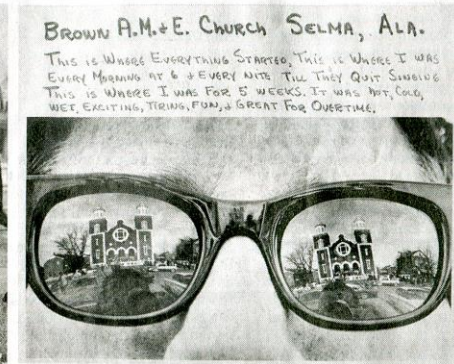 BROWN A.M.+E. CHURCH SELMA, ALA.
THIS IS WHERE EVERYTHING STARTED, THIS IS WHERE I WAS
EVERY MORNING AT 6 + EVERY NITE TILL THEY QUIT SINGING
THIS IS WHERE I WAS FOR 5 WEEKS. IT WAS HOT, COLD,
WET, EXCITING, TIRING, FUN, + GREAT FOR OVERTIME.